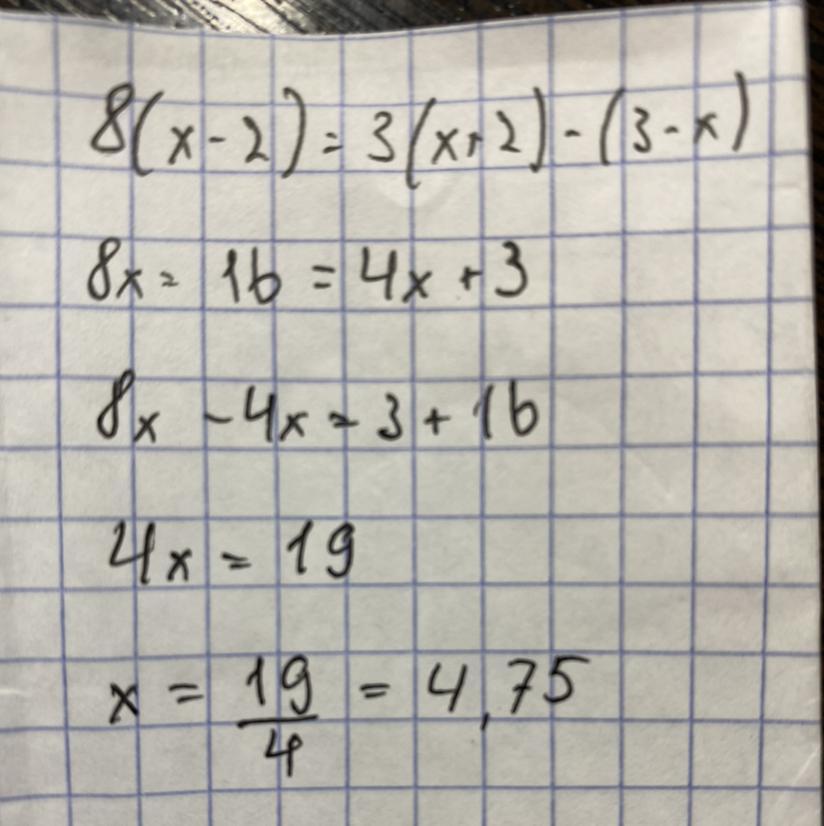 8(x-2)=3(x+2)-(3-x)
8x = 16 = 4x + 3
8x - 4x = 3 + 16
4x = 19
x = 19/4 = 4,75